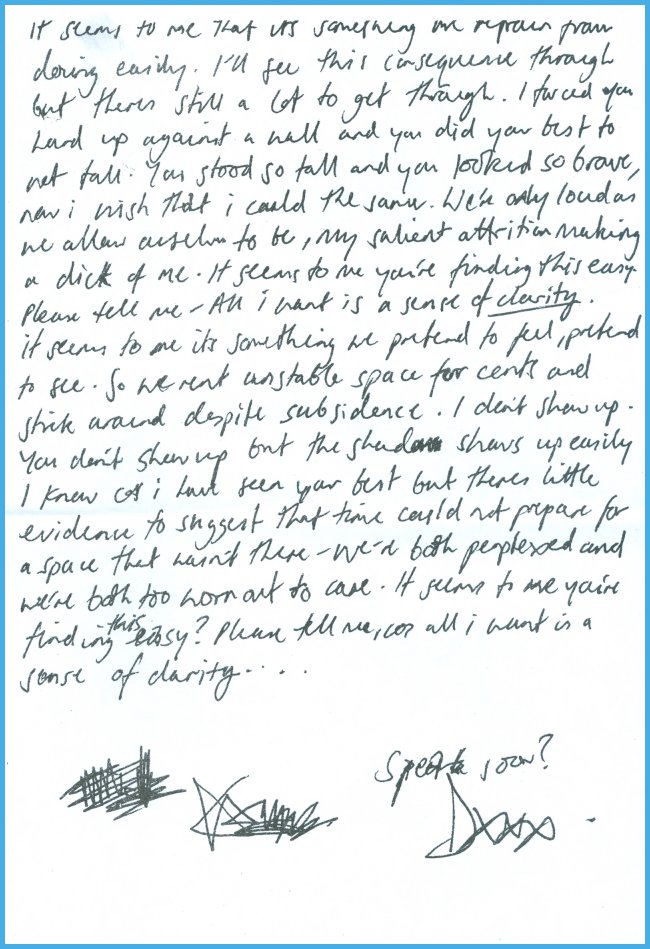 It seems to me that its something we refrain from
doing easily. I'll see this consequence through
but theres still a lot to get through. I forced you
hard up against a wall and you did your best to
not fall. You stood so tall and you looked so brave,
now i wish that i could the same. We're only loud as
we allow ourselves to be, my salient attrition making
a dick of me. It seems to me you're finding this easy.
Please tell me - All i want is a sense of clarity.
it seems to me its something we pretend to feel, pretend
to see. So we rent unstable space for cents and
stick around despite subsidence. I don't show up.
You don't show up but the shadow shows up easily
I know cos i have seen your best but theres little
evidence to suggest that time could not prepare for
a space that wasn't there - we're both perplexed and
we're both too worn out to care. It seems to me you're
finding this easy? Please tell me, cos all i want is a
sense of clarity....
Speak soon?
Dxxx